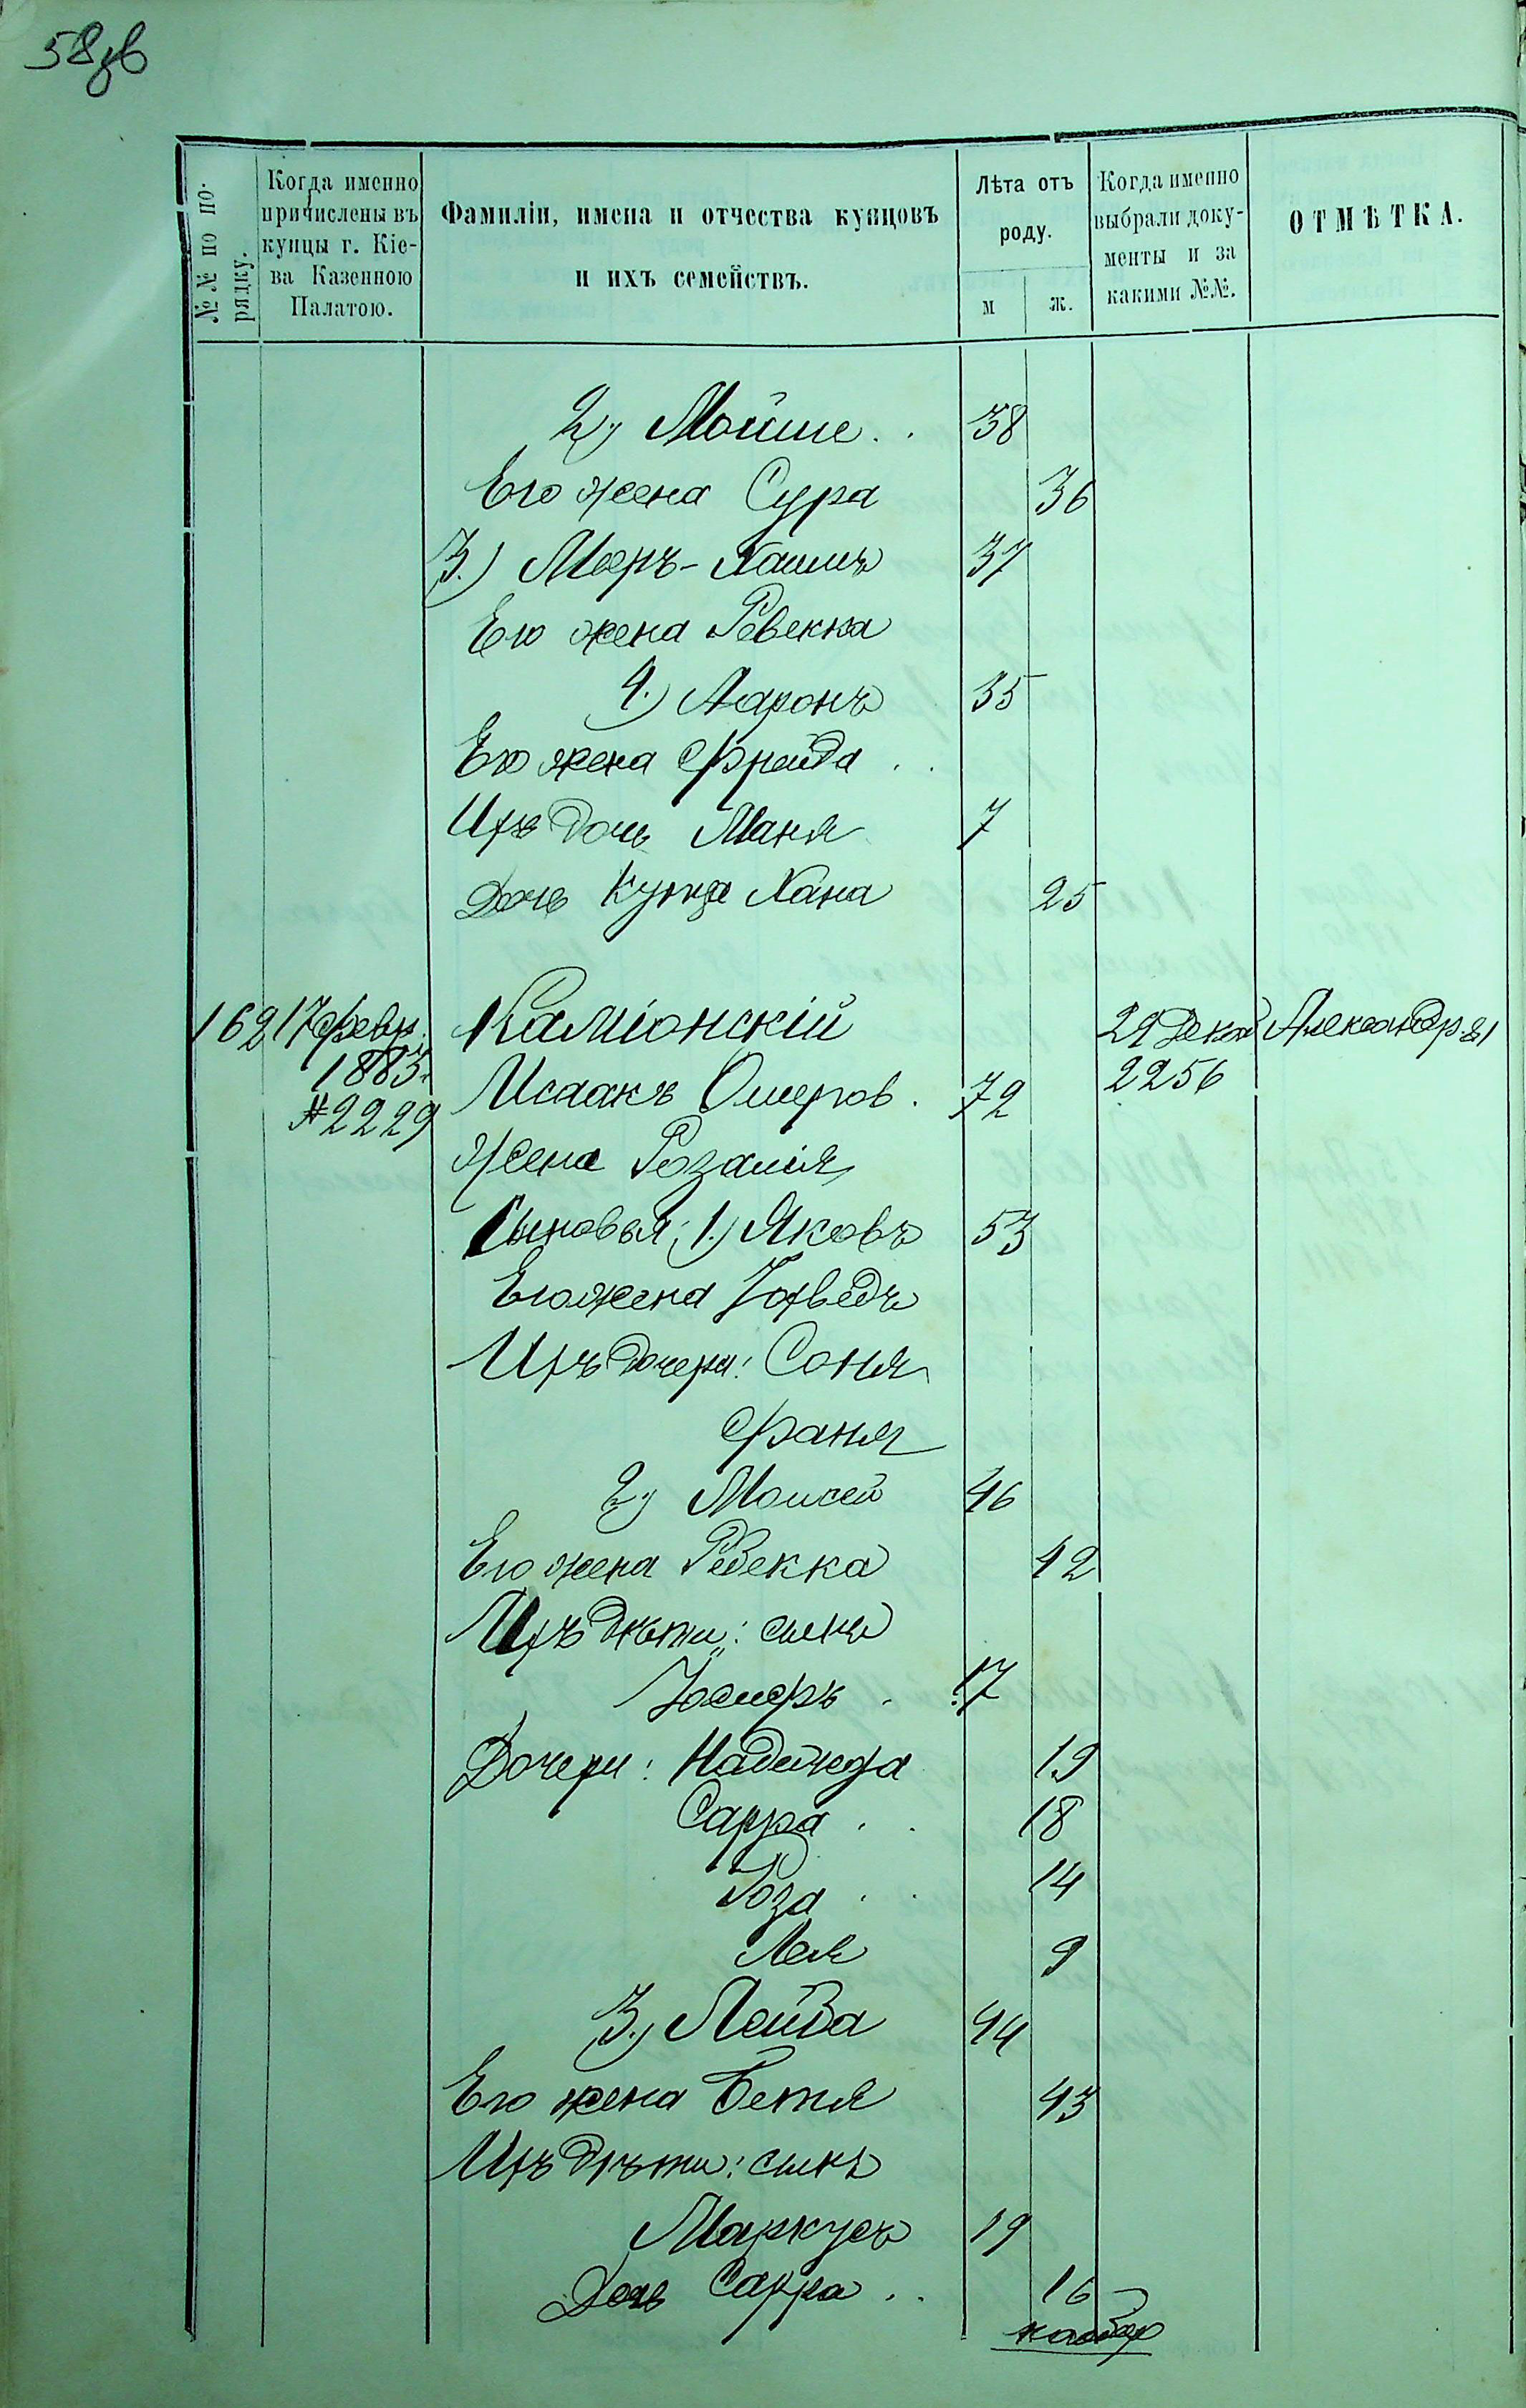 58зв
№№ по по-
рядку.
Когда именно
причислены въ
купцы г. Кіе-
ва Казенною
Палатою.
Фамиліи, имена и отчества купцовъ
и ихъ семействъ.
Лѣта отъ
роду.
м
ж.
Когда именно
выбрали доку-
менты и за
какими №№.
ОТМѢТКА.
2) Мойше . . 38
Его жена Сура 36
3.) Меръ-Хаимъ 37
Его жена Ревекка
4.) Ааронъ 35
Его жена Фрейда . .
Ихъ дочь Маня 7
Дочь купца Хана 25
162 17 февр. Каміонскій 29 Декаб Александр. 21
1883. Исаакъ Ошеров. 72 2256
#2229
Жена Розалія
Сыновья: 1.) Яковъ 53
Его жена Іохведъ
Ихъ дочери: Соня
Фаня
2) Моисей 46
Его жена Ревекка 42
Ихъ дѣти: сынъ
Іосифъ . 17
Дочери: Надежда 19
Сарра . . 18
Роза . . 14
Лея 9
3.) Лейба 44
Его жена Бетя 43
Ихъ дѣти: сынъ
Маркусъ 19
Дочь Сарра . . 16